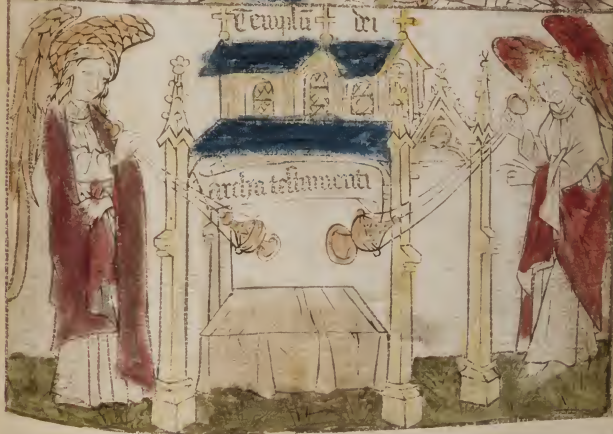 Templū dei
archa testamenti